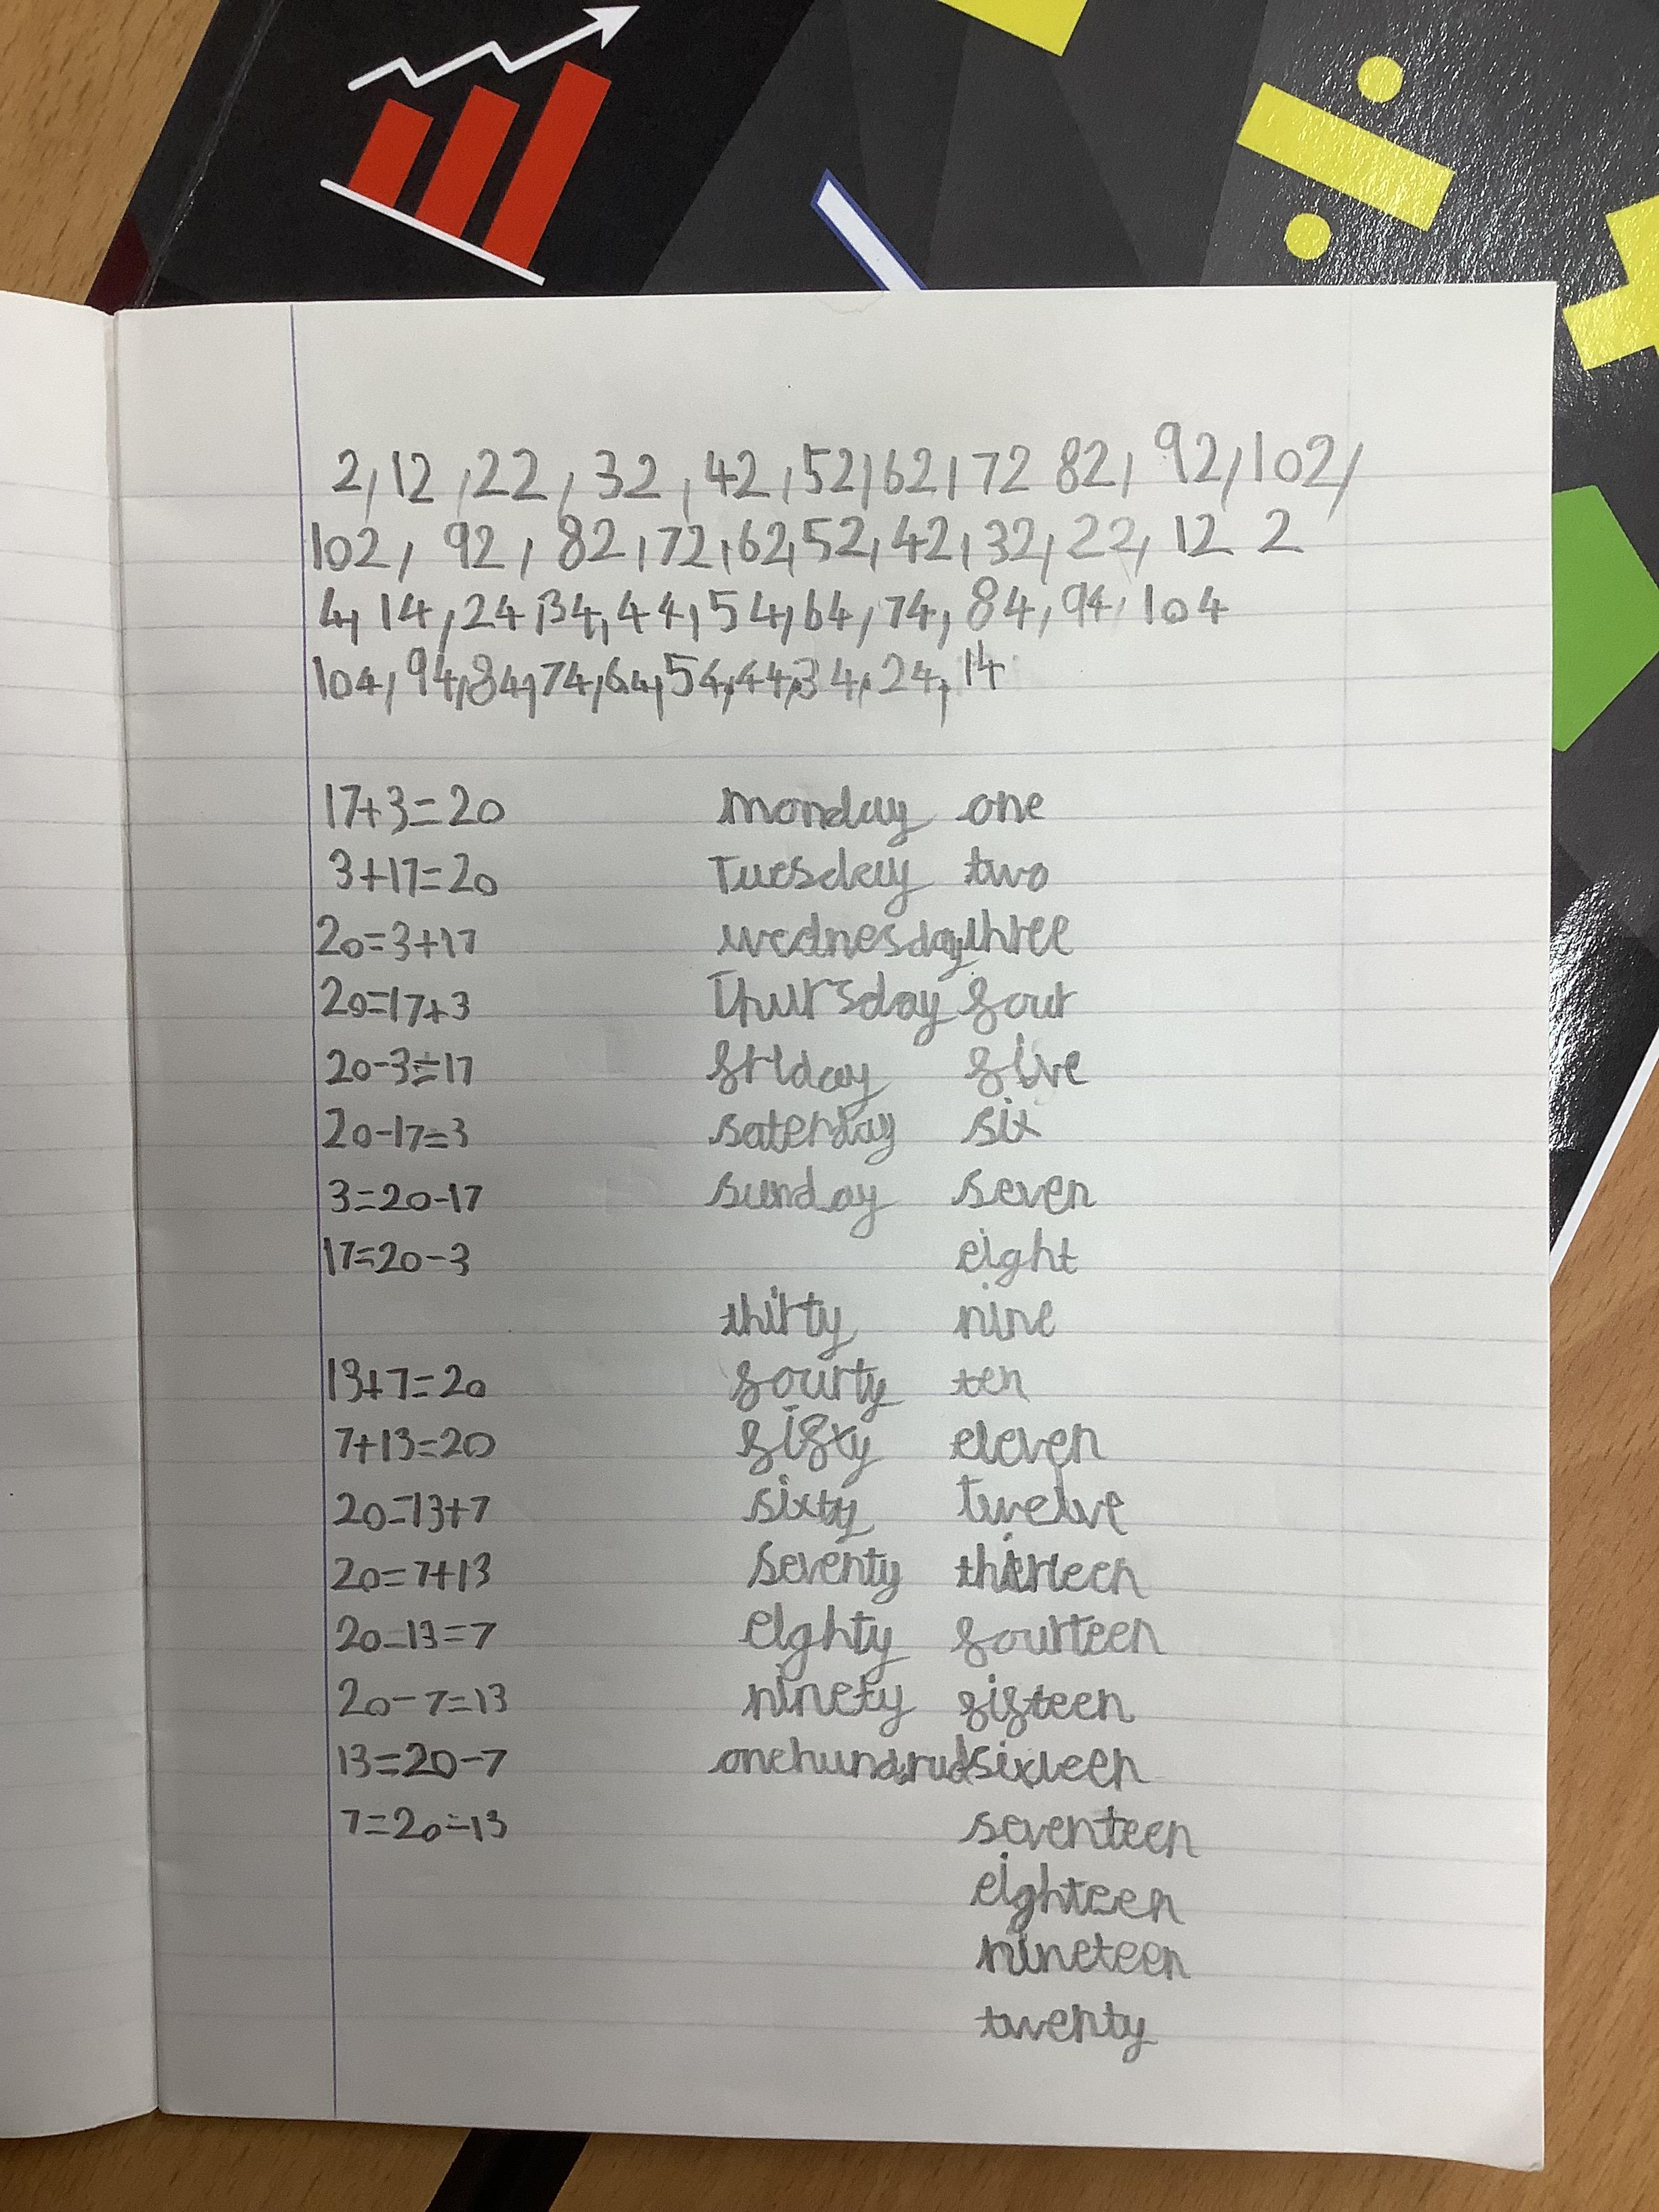 2, 12, 22, 32, 42, 52, 62, 72 82, 92, 102,
102, 92, 82, 72, 62, 52, 42, 32, 22, 12 2
4, 14, 24, 34, 44, 54, 64, 74, 84, 94, 104
104, 94, 84, 74, 64, 54, 44, 34, 24, 14
17+3=20 monday one
3+17=20 Tuesday two
20=3+17 wednesday three
20=17+3 Thursday four
20-3=17 friday five
20-17=3 saterday six
3=20-17 sunday seven
17=20-3 eight
thirty nine
13+7=20 fourty ten
7+13=20 fifxy eleven
20=13+7 sixty twelve
20=7+13 seventy thirteen
20-13=7 eighty fourteen
20-7=13 ninety fifteen
13=20-7 onehundrud sixteen
7=20-13 seventeen
eighteen
nineteen
twenty